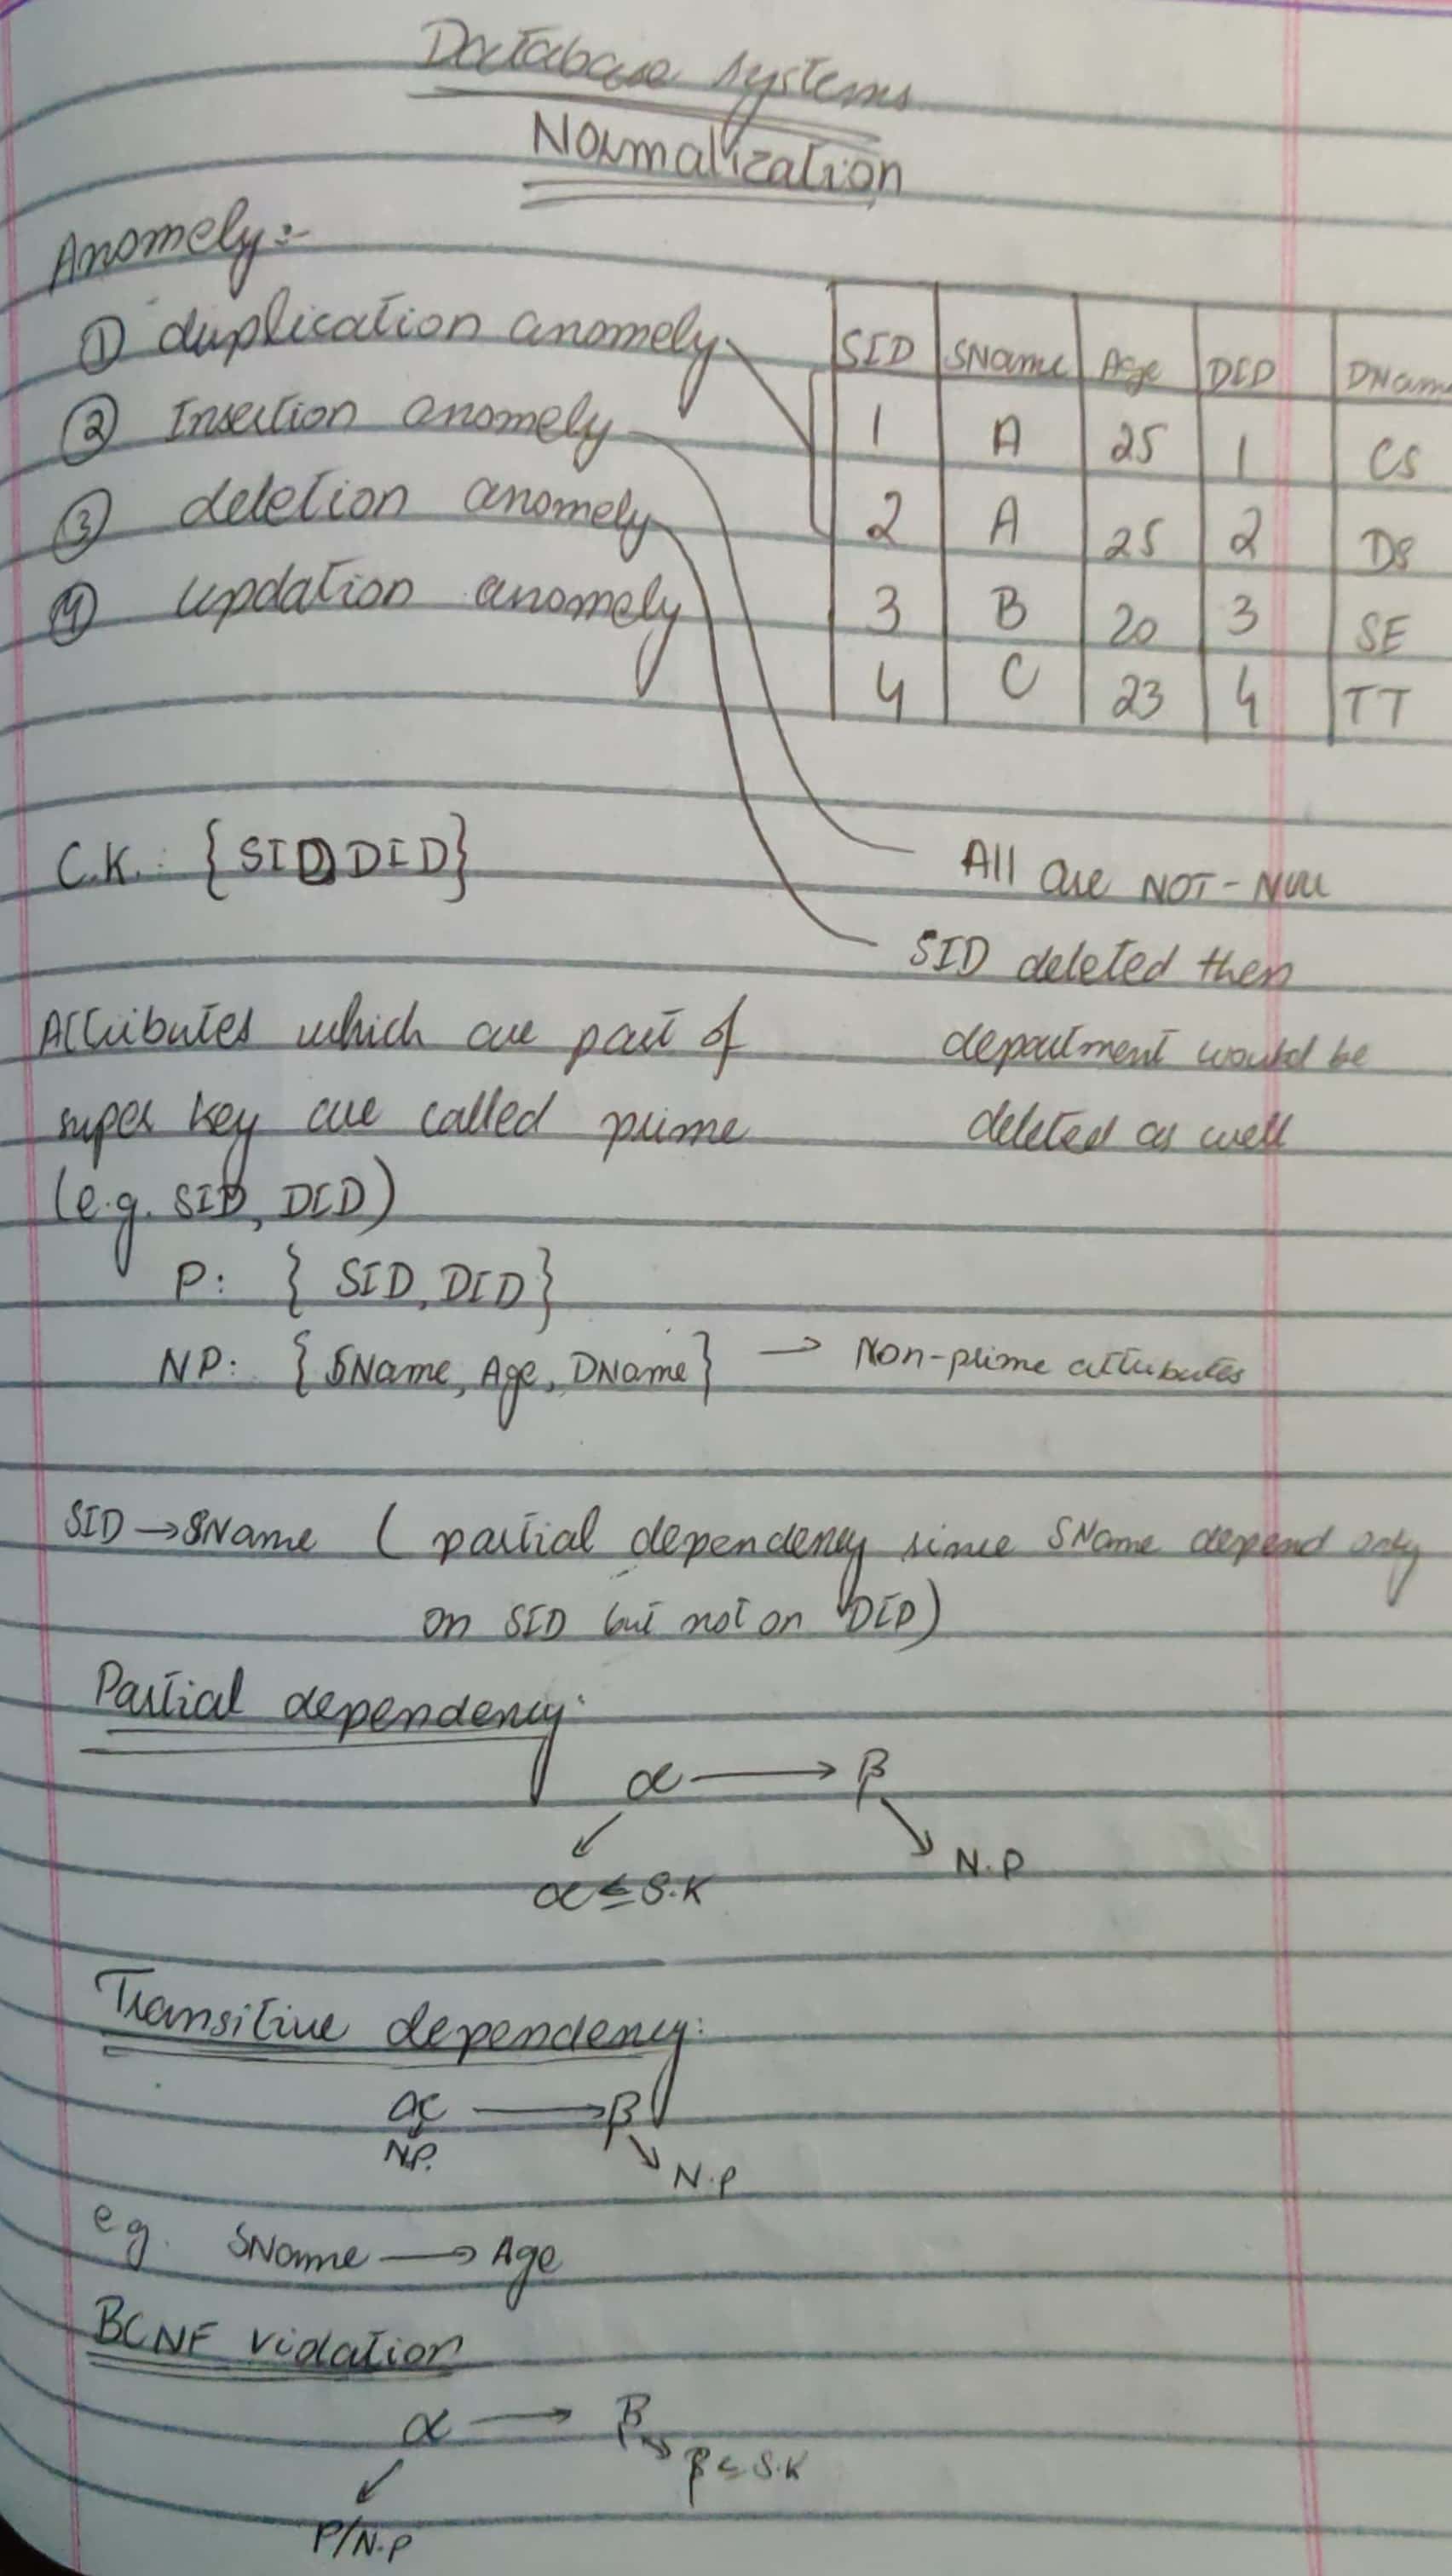 Database systems
Normalization
Anomely:-
① duplication anomely
② Insertion anomely
③ deletion anomely
④ updation anomely
SID SName Age DID DNam
1 A 25 1 CS
2 A 25 2 DS
3 B 20 3 SE
4 C 23 4 TT
C.K.: {SID DID}
All are NOT-NULL
SID deleted then
department would be
deleted as well
Attributes which are part of
super key are called prime
(e.g. SID, DID)
P: { SID, DID}
NP: { SName, Age, DName} → Non-prime attributes
SID → SName ( partial dependency since SName depend only
on SID but not on DID)
Partial dependency:
α → β
α ⊆ S.K
N.P
Transitive dependency:
α → β
N.P.
N.P
eg. SName → Age
BCNF violation
α → β
β ⊆ S.K
P/N.P